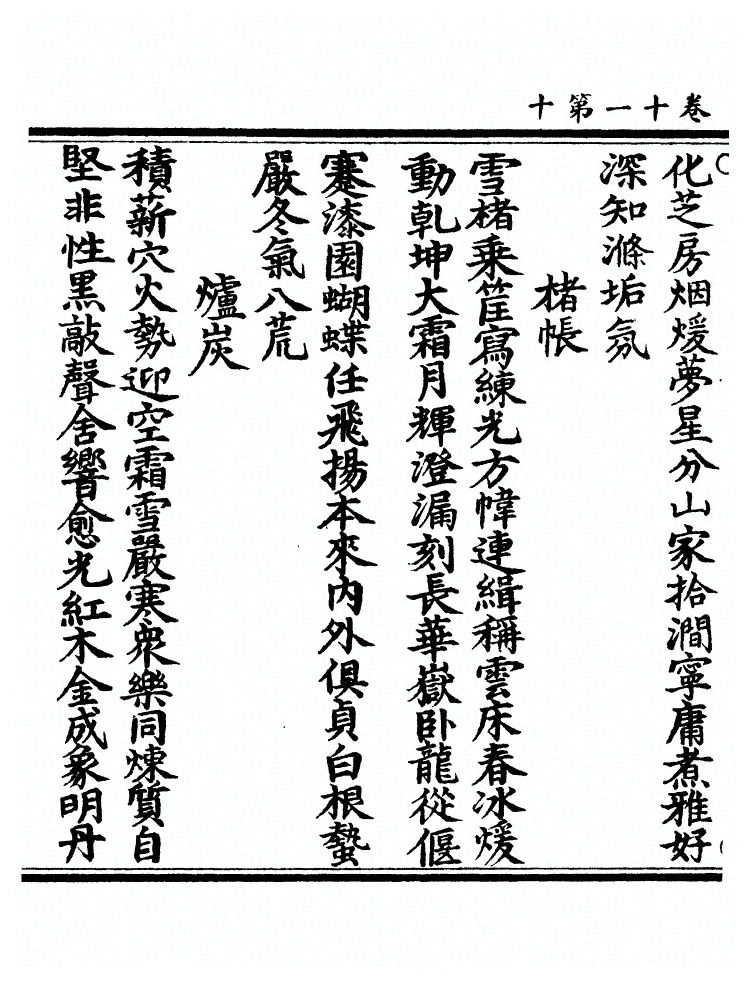 卷十一第十
化芝房烟煖夢星分山家拾澗寧庸煮雅好
深知滌垢氛
楮帳
雪楮乘筐寫練光方幃連緝稱雲床春冰煖
動乾坤大霜月輝澄漏刻長華嶽臥龍從偃
蹇漆園蝴蝶任飛揚本來內外俱貞白根蟄
嚴冬氣八荒
爐炭
積薪穴火勢迎空霜雪嚴寒衆樂同煉質自
堅非性黑敲聲舍響愈光紅木金成象明丹